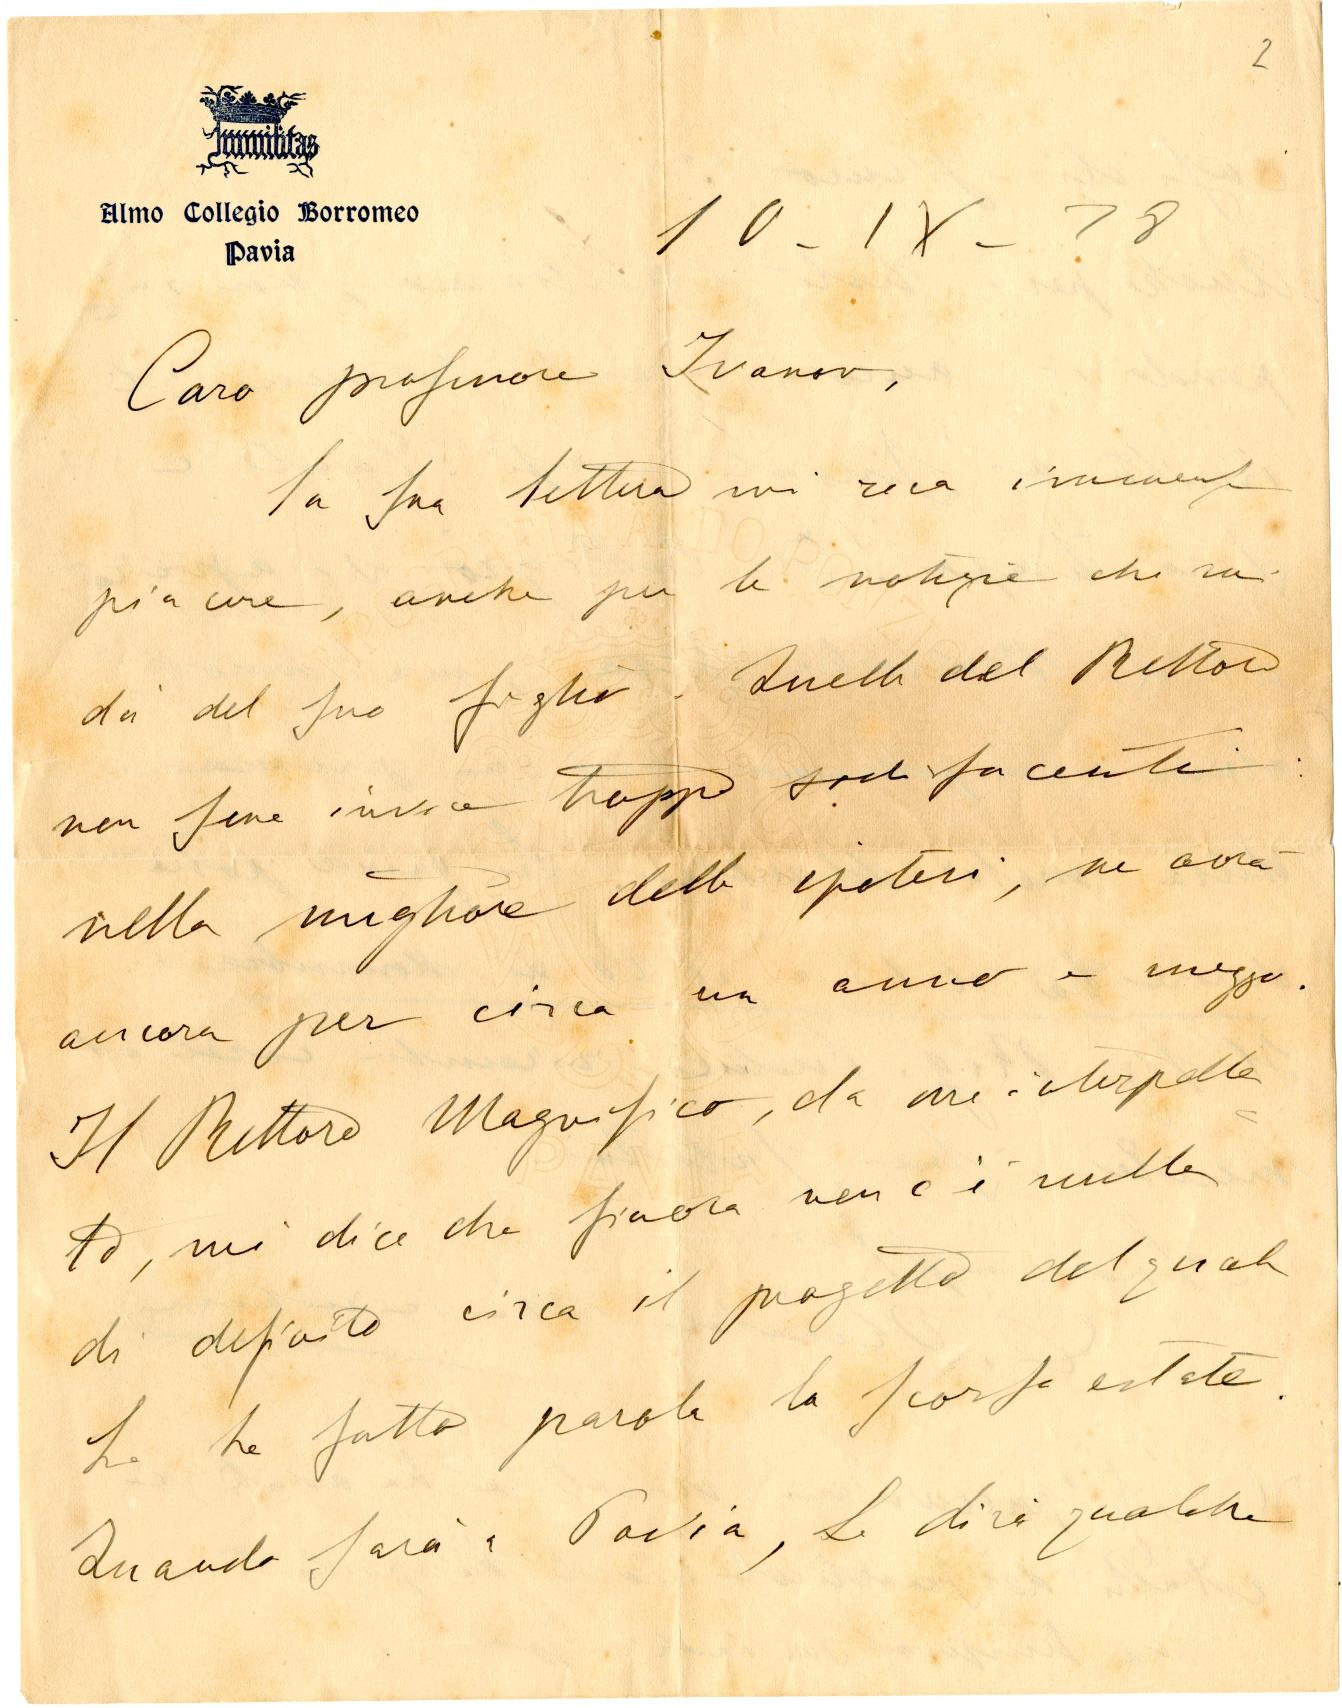 2
Humilitas
Almo Collegio Borromeo
Pavia
10 - IX - 28
Caro professore Ivanov,
la sua lettera mi reca immenso
piacere, anche per le notizie che mi
dà del suo figlio. Quelle del Rettore
non sono invece troppo sodisfacenti:
nella migliore delle ipotesi, ne avrà
ancora per circa un anno e mezzo.
Il Rettore Magnifico, da me interpella=
to, mi dice che finora non c'è nulla
di definito circa il progetto del quale
Le ho fatto parola la scorsa estate.
Quando sarà a Pavia, Le dirà qualche